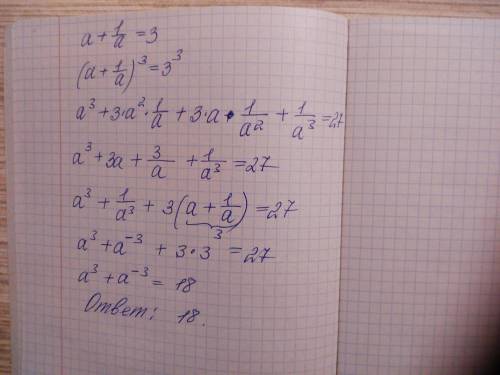 a + 1/a = 3
(a + 1/a)³ = 3³
a³ + 3·a²·1/a + 3·a·1/a² + 1/a³ = 27
a³ + 3a + 3/a + 1/a³ = 27
a³ + 1/a³ + 3(a + 1/a) = 27
3
a³ + a⁻³ + 3·3 = 27
a³ + a⁻³ = 18
Ответ: 18.